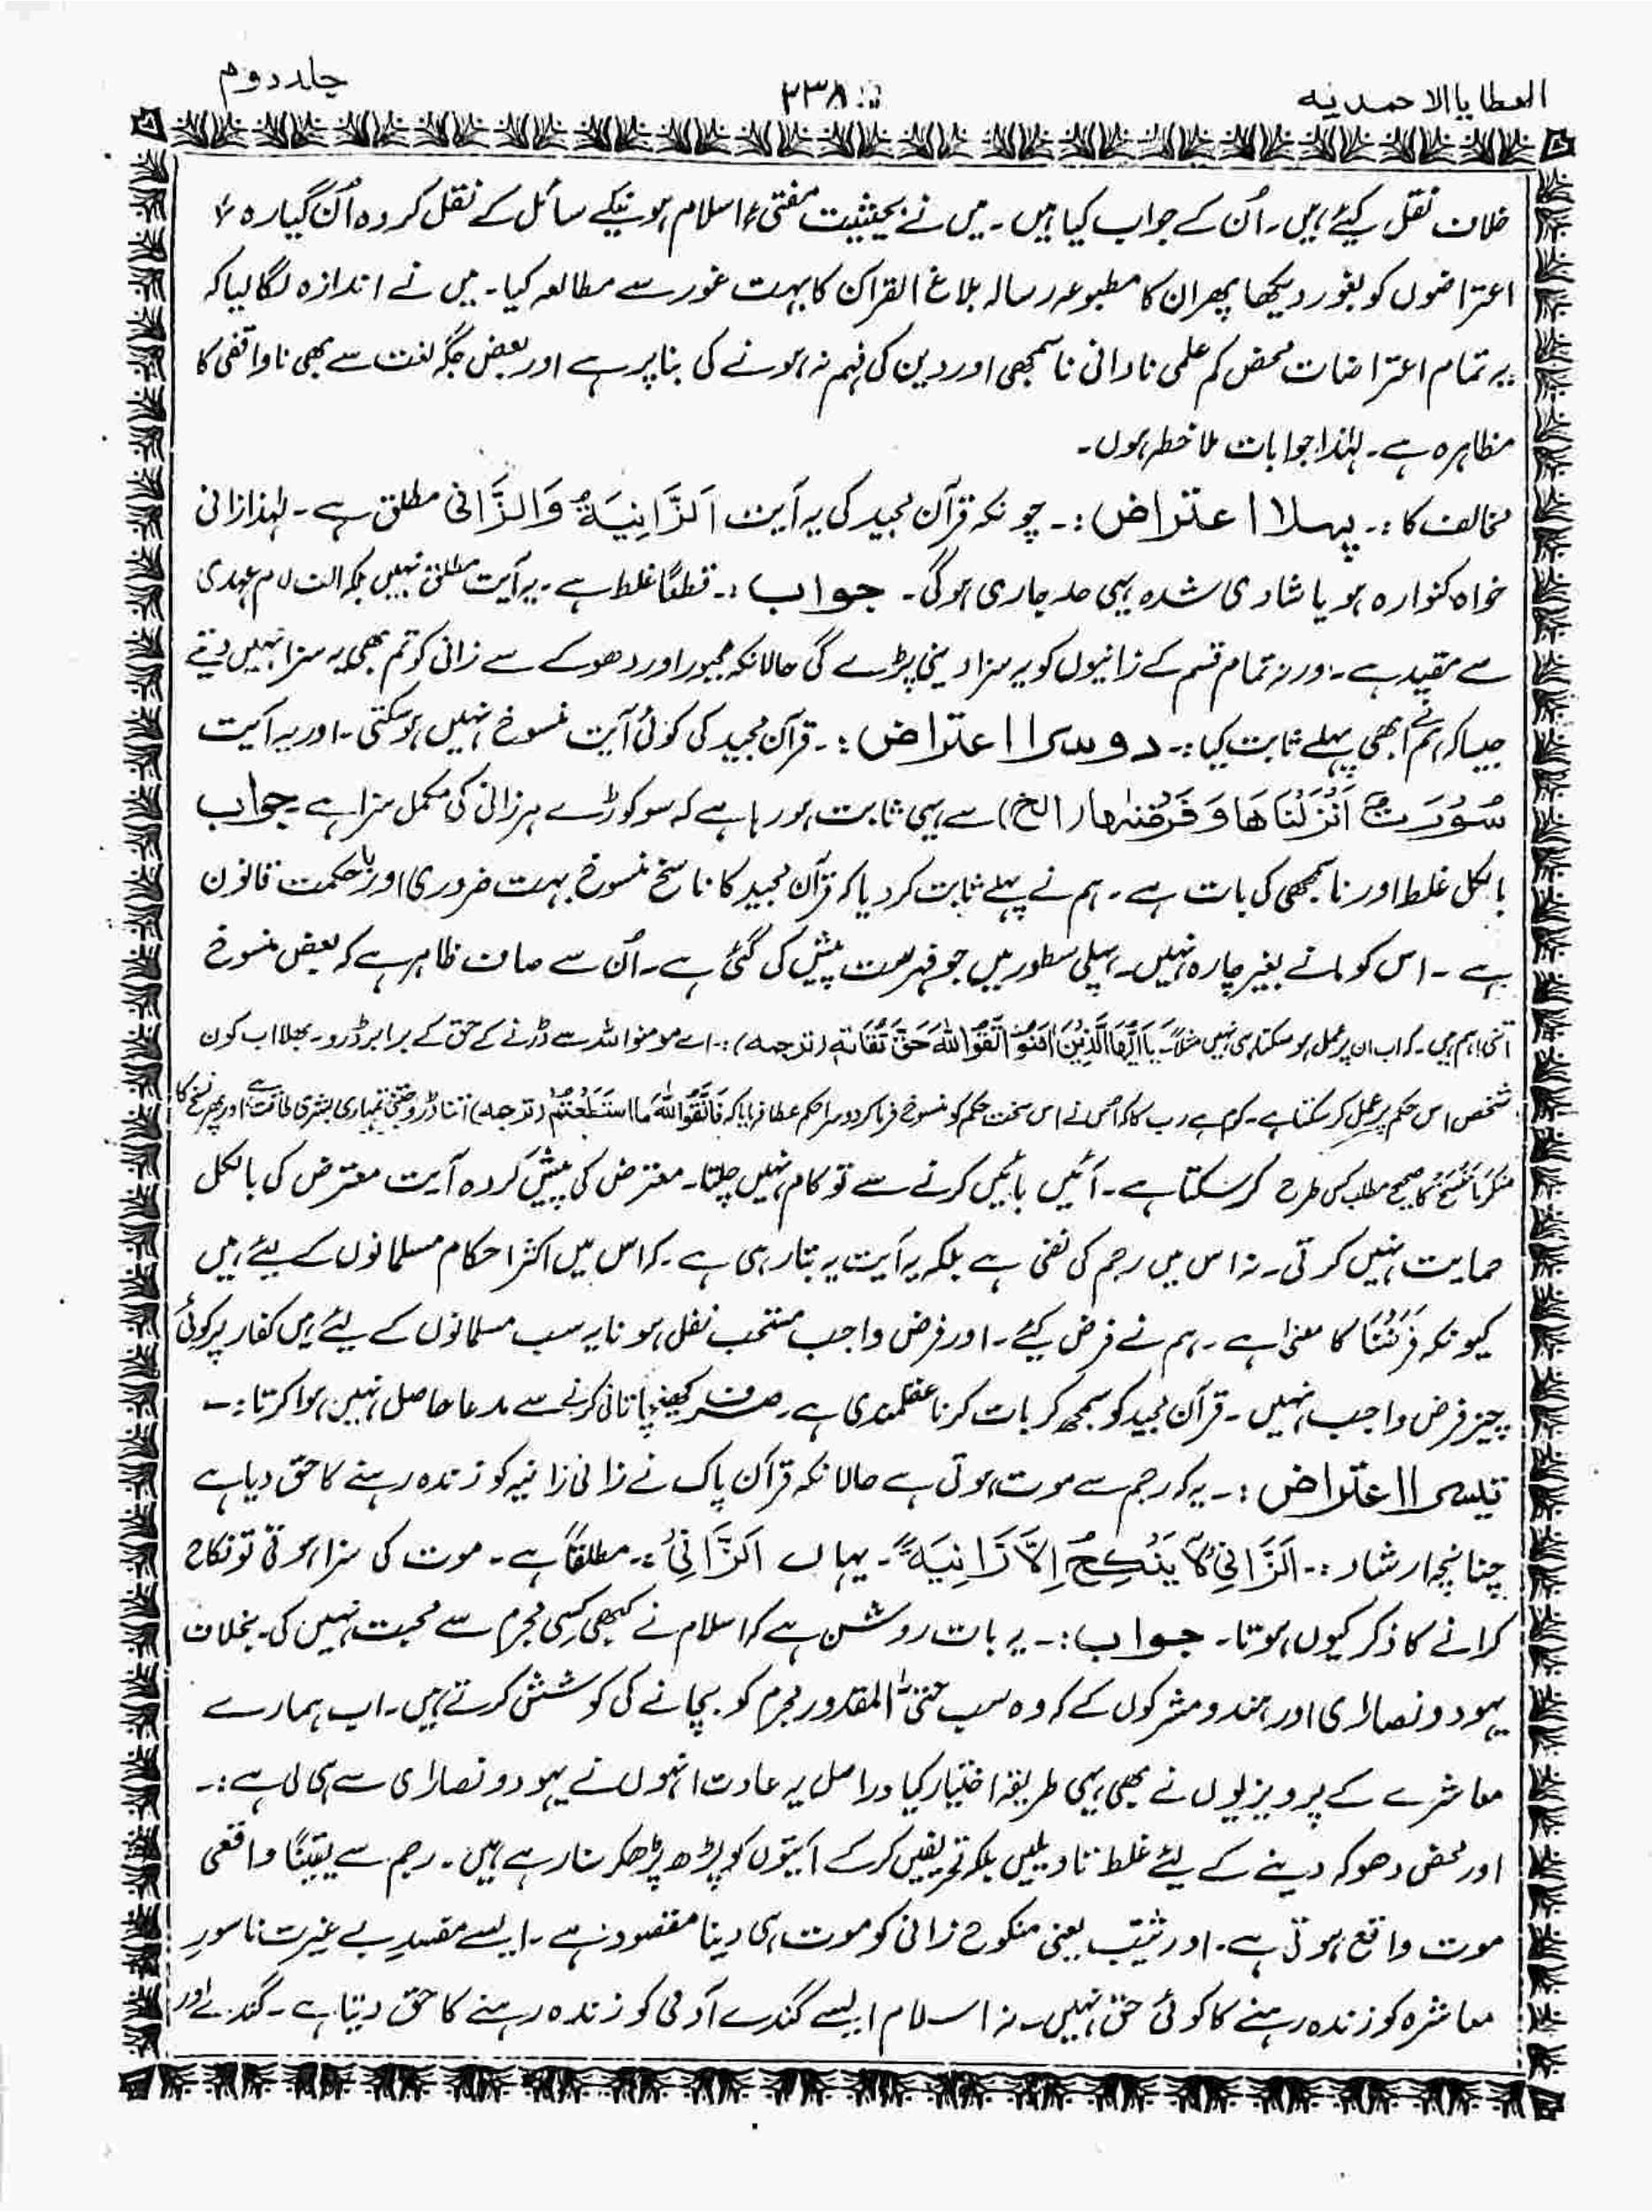 العطایا الاحمدیہ
۲۳۸
جلد دوم
خلاف نقل کیئے ہیں۔ اُن کے جواب کیا ہیں۔ میں نے بحیثیت مفتیٔ اسلام ہونیکے سائل کے نقل کردہ اُن گیارہ
اعتراضوں کو بغور دیکھا پھر ان کا مطبوعہ رسالہ بلاغ القرآن کا بہت غور سے مطالعہ کیا۔ میں نے اندازہ لگا لیا کہ
یہ تمام اعتراضات محض کم علمی نادانی ناسمجھی اور دین کی فہم نہ ہونے کی بنا پر ہے اور بعض جگہ لغت سے بھی ناواقفی کا
مظاہرہ ہے۔ لہٰذا جوابات ملاحظہ ہوں۔
مخالف کا :۔ پہلا اعتراض :۔ چونکہ قرآن مجید کی یہ آیت اَلزَّانِیَۃُ وَالزَّانی مطلق ہے۔ لہٰذا زانی
خواہ کنوارہ ہو یا شادی شدہ یہی حد جاری ہوگی۔ جواب :۔ قطعًا غلط ہے۔ یہ آیت مطلق نہیں بلکہ الف لام عہدی
سے مقید ہے۔ ورنہ تمام قسم کے زانیوں کو یہ سزا دینی پڑے گی حالانکہ مجبور اور دھوکے سے زانی کو تم بھی یہ سزا نہیں دیتے
جیسا کہ ہم نے ابھی پہلے ثابت کیا :۔ دوسرا اعتراض :۔ قرآن مجید کی کوئی آیت منسوخ نہیں ہو سکتی۔ اور یہ آیت
سُوْرَۃٌ اَنْزَلْنَاھَا وَ فَرَضْنٰھا (الخ) سے یہی ثابت ہو رہا ہے کہ سو کوڑے ہر زانی کی مکمل سزا ہے جواب
بالکل غلط اور ناسمجھی کی بات ہے۔ ہم نے پہلے ثابت کر دیا کہ قرآن مجید کا ناسخ منسوخ بہت ضروری اور باحکمت قانون
ہے۔ اس کو مانے بغیر چارہ نہیں۔ پہلی سطور میں جو فہرست پیش کی گئی ہے۔ اُن سے صاف ظاہر ہے کہ بعض منسوخ
اتنی اہم ہیں۔ کہ اب ان پر عمل ہو سکتا ہی نہیں مثلاً۔ یٰاَیُّھَا الَّذِیْنَ اٰمَنُوا اتَّقُوا اللہَ حَقَّ تُقَاتِہٖ (ترجمہ) :۔ اے مومنو اللہ سے ڈرنے کے حق کے برابر ڈرو۔ بھلا اب کون
شخص اس حکم پر عمل کر سکتا ہے۔ کرم ہے رب کا کہ اُس نے اس سخت حکم کو منسوخ فرما کر دوسرا حکم عطا فرمایا کہ فَاتَّقُوا اللہَ مَا اسْتَطَعْتُمْ (ترجمہ) اتنا ڈرو جتنی تمہاری بشری طاقت ہے اور پھر نسخ کا
منکر مَا نَنْسَخْ کا صحیح مطلب کس طرح کر سکتا ہے۔ آئیں بائیں کرنے سے تو کام نہیں چلتا۔ معترض کی پیش کردہ آیت معترض کی بالکل
حمایت نہیں کرتی۔ نہ اس میں رجم کی نفی ہے بلکہ یہ آیت یہ بتا رہی ہے۔ کہ اس میں اکثر احکام مسلمانوں کے لیئے ہیں
کیونکہ فَرَضْنَا کا معنیٰ ہے۔ ہم نے فرض کیئے۔ اور فرض واجب مستحب نفل ہونا یہ سب مسلمانوں کے لیئے ہیں کفار پر کوئی
چیز فرض واجب نہیں۔ قرآن مجید کو سمجھ کر بات کرنا عقلمندی ہے۔ صرف کھینچا تانی کرنے سے مدعا حاصل نہیں ہوا کرتا :۔
تیسرا اعتراض :۔ یہ کہ رجم سے موت ہوتی ہے حالانکہ قرآن پاک نے زانی زانیہ کو زندہ رہنے کا حق دیا ہے
چنانچہ ارشاد :۔ اَلزَّانِیْ لَا یَنْکِحُ اِلَّا زَانِیَۃً۔ یہاں اَلزَّانِیْ :۔ مطلقًا ہے۔ موت کی سزا ہوتی تو نکاح
کرانے کا ذکر کیوں ہوتا۔ جواب :۔ یہ بات روشن ہے کہ اسلام نے کبھی کسی مجرم سے محبت نہیں کی۔ بخلاف
یہود و نصاریٰ اور ہندو مشرکوں کے کہ وہ سب حتیٰ المقدور مجرم کو بچانے کی کوشش کرتے ہیں۔ اب ہمارے
معاشرے کے پرویزیوں نے بھی یہی طریقہ اختیار کیا دراصل یہ عادت انہوں نے یہود و نصاریٰ سے ہی لی ہے :۔
اور محض دھوکہ دینے کے لیئے غلط تاویلیں بلکہ تحریفیں کرکے آیتوں کو پڑھ پڑھ کر سنا رہے ہیں۔ رجم سے یقینًا واقعی
موت واقع ہوتی ہے۔ اور ثیّب یعنی منکوح زانی کو موت ہی دینا مقصود ہے۔ ایسے مفسد بے غیرت ناسورِ
معاشرہ کو زندہ رہنے کا کوئی حق نہیں۔ نہ اسلام ایسے گندے آدمی کو زندہ رہنے کا حق دیتا ہے۔ گندے اور